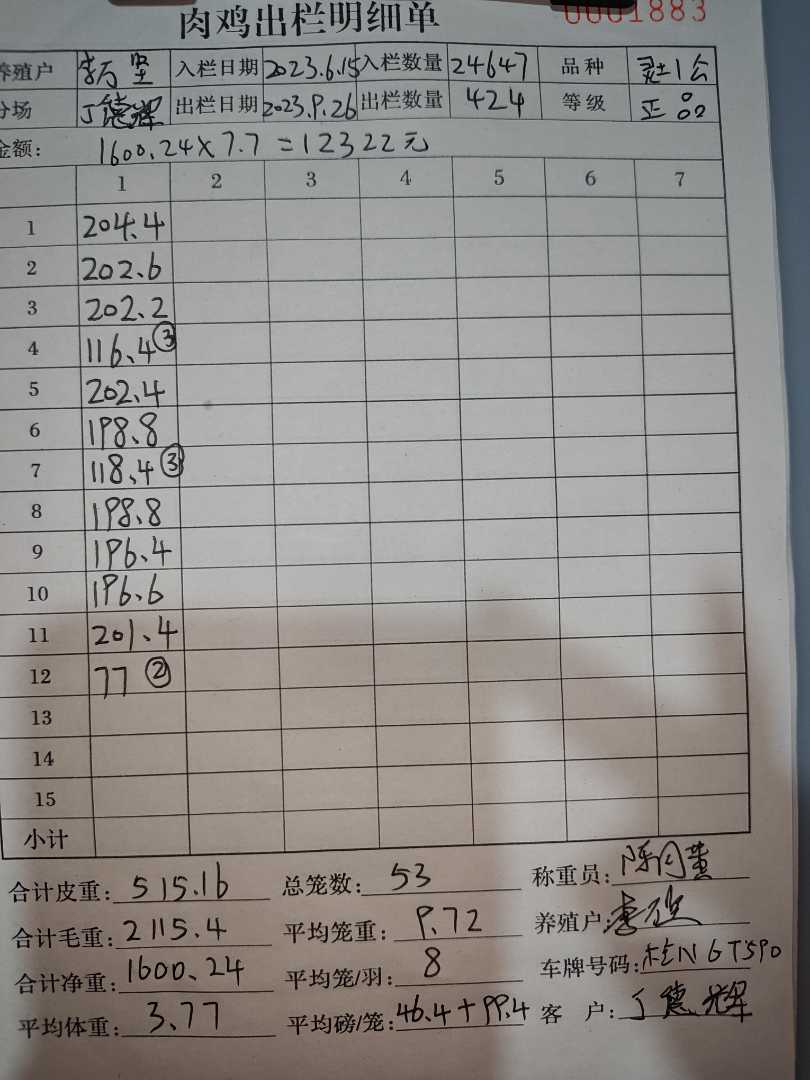 肉鸡出栏明细单 0001883
养殖户 李万坚 入栏日期 2023.6.15 入栏数量 24647 品种
分场 丁德辉 出栏日期 2023.9.26 出栏数量 424 等级 正品
金额: 1600.24×7.7=12322元
1 2 3 4 5 6 7
1 204.4
2 202.6
3 202.2
4 116.4 ③
5 202.4
6 198.8
7 118.4 ③
8 198.8
9 196.4
10 196.6
11 201.4
12 77 ②
13
14
15
小计
合计皮重: 515.16 总笼数: 53 称重员:
合计毛重: 2115.4 平均笼重: 9.72 养殖户:
合计净重: 1600.24 平均笼/羽: 8 车牌号码: 桂N GT590
平均体重: 3.77 平均磅/笼: 46.4+99.4 客户: 丁德辉